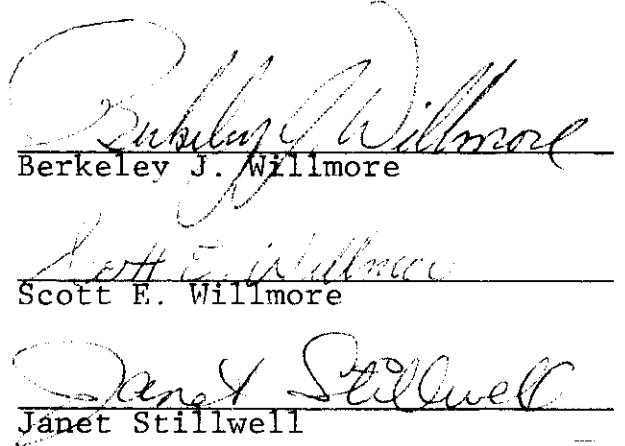 Berkeley J. Willmore
Berkeley J. Willmore
Scott E. Willmore
Scott E. Willmore
Janet Stillwell
Janet Stillwell